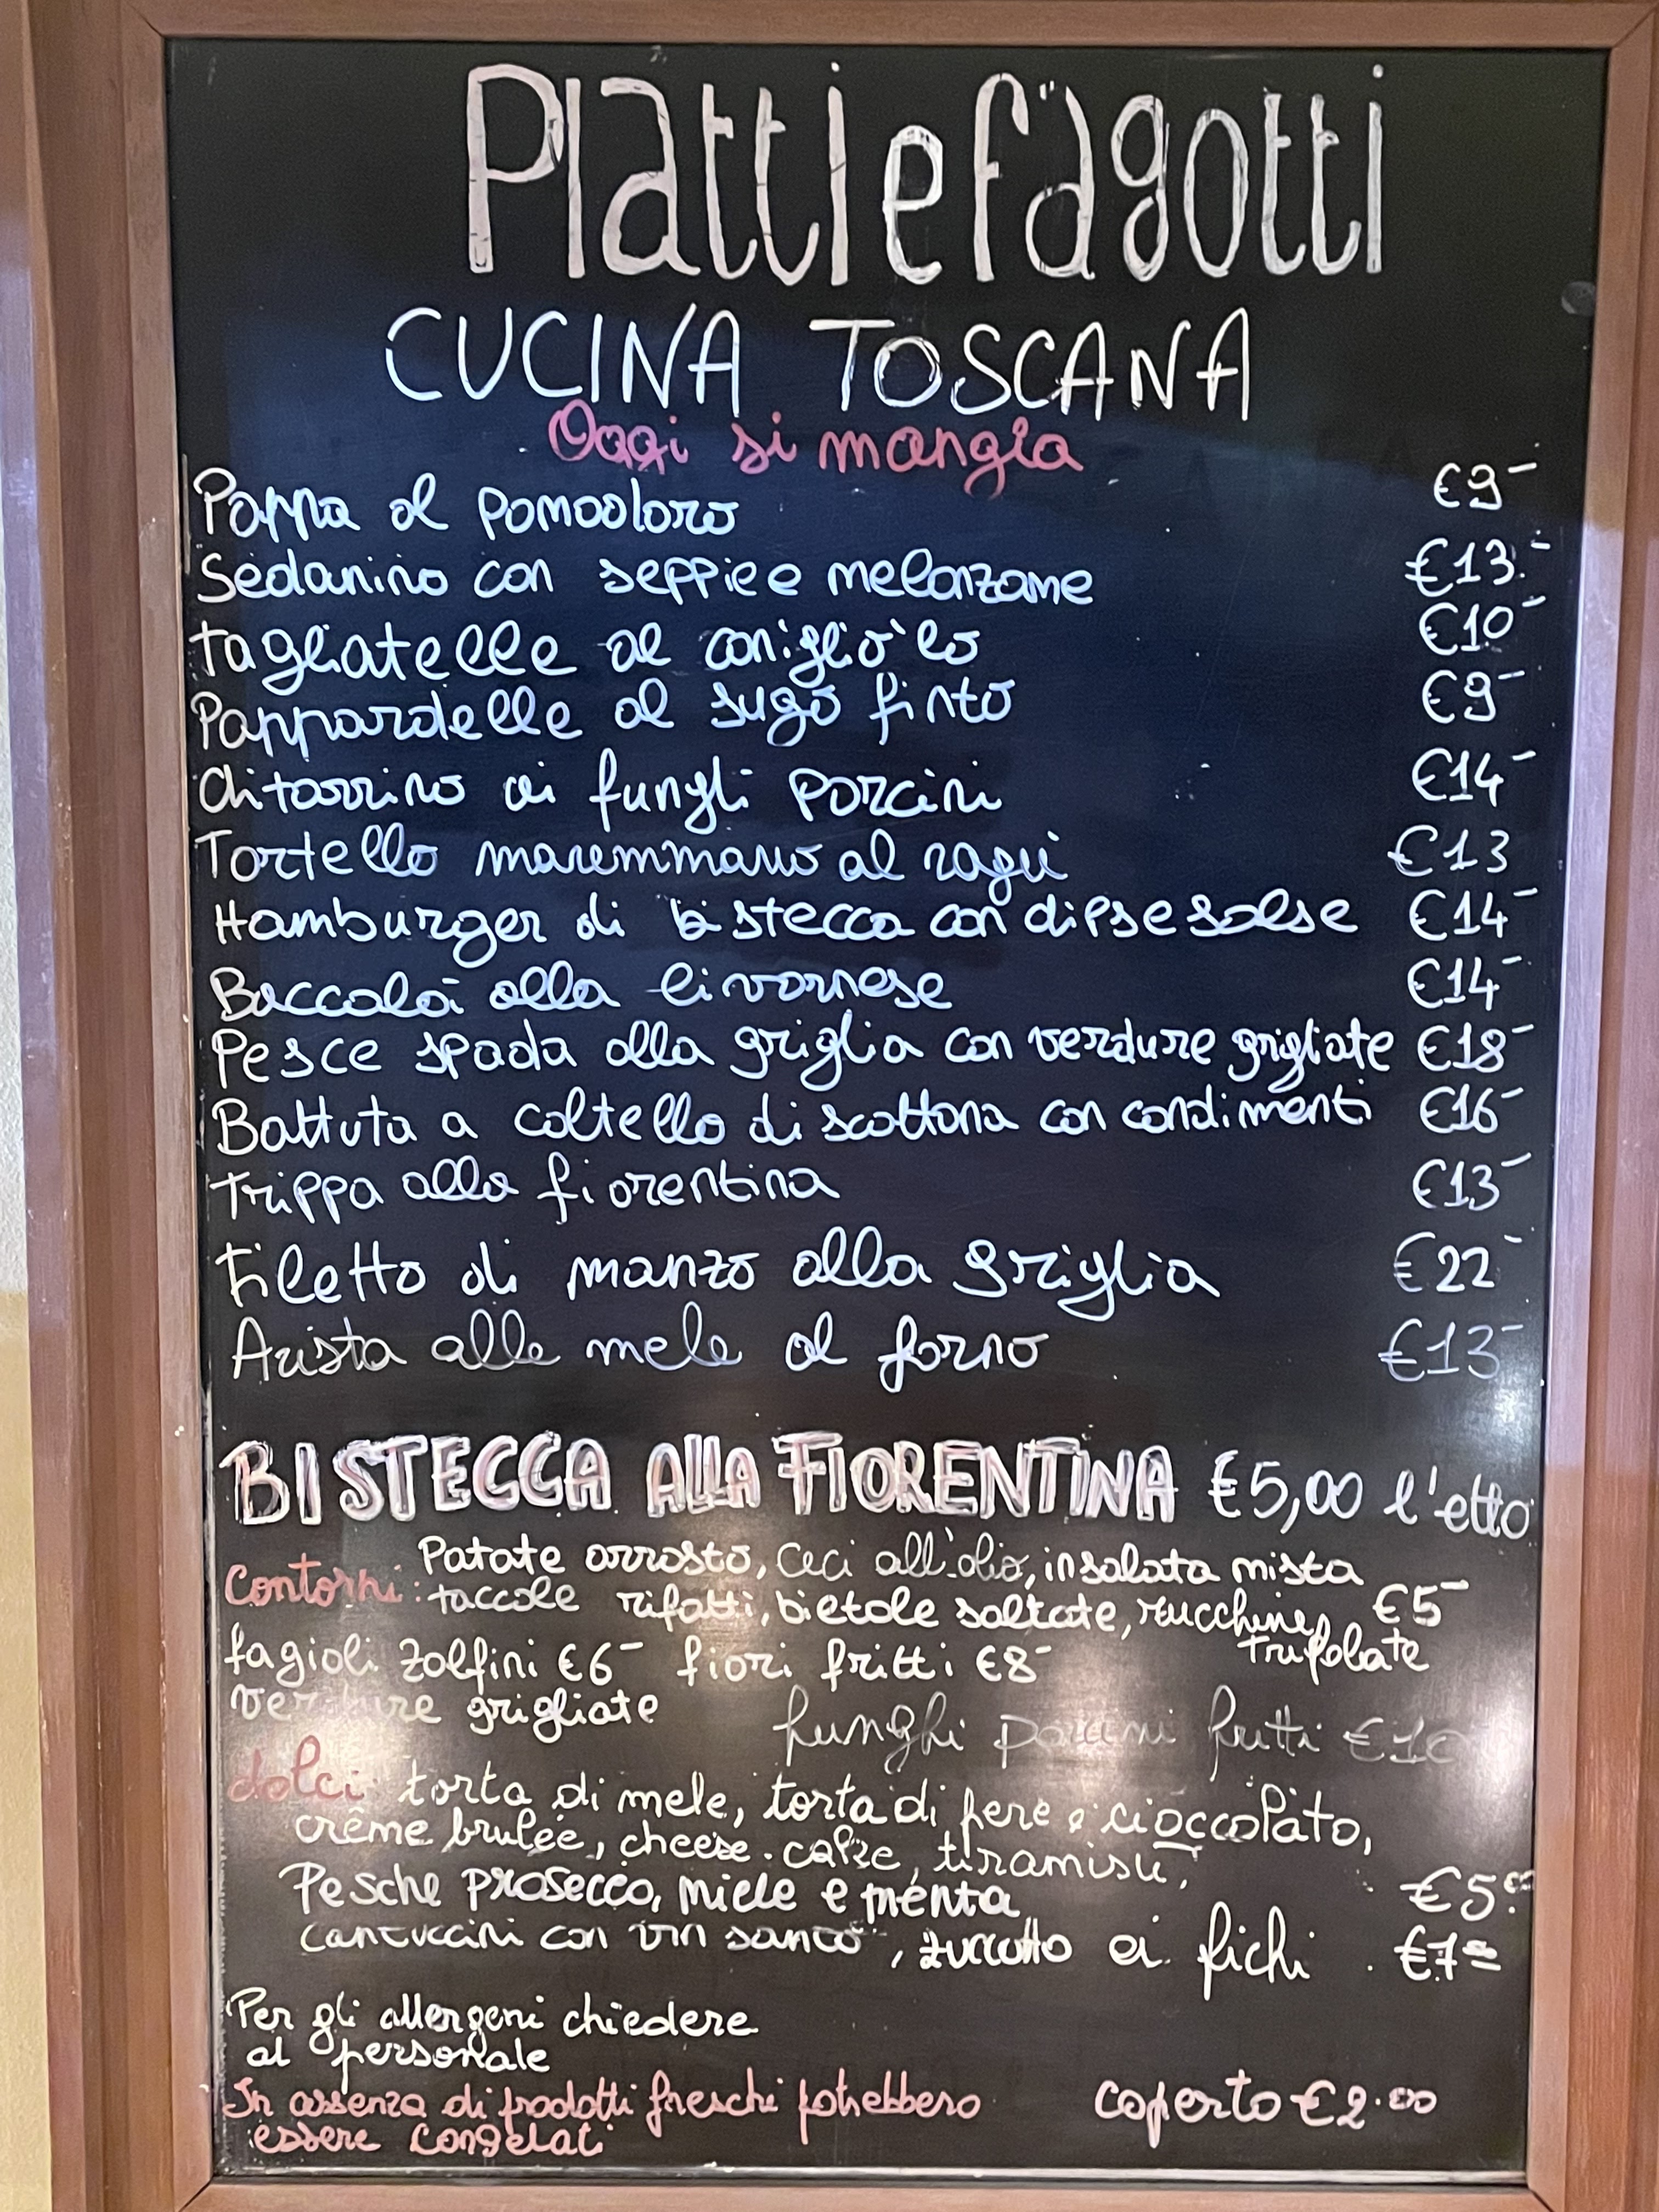 Piatti e fagotti
CUCINA TOSCANA
Oggi si mangia
Pappa al pomodoro €9-
Sedanino con seppie e melanzane €13.-
tagliatelle al coniglio €10-
Pappardelle al sugo finto €9-
Chitarrino ai funghi porcini €14-
Tortello maremmano al ragù €13
Hamburger di bistecca con salse €14-
Baccalà alla livornese €14-
Pesce spada alla griglia con verdure grigliate €18-
Battuta a coltello di scottona con condimenti €16-
Trippa alla fiorentina €13-
Filetto di manzo alla griglia €22-
Arista alle mele al forno €13-
BISTECCA ALLA FIORENTINA €5,00 l'etto
Contorni: Patate arrosto, Ceci all'olio, insalata mista
taccole rifatti, bietole saltate, zucchine €5-
trifolate
fagioli zolfini €6- fiori fritti €8-
verdure grigliate
funghi porcini fritti €10
dolci: torta di mele, torta di pere e cioccolato,
crême brulée, cheese-cake, tiramisù,
Pesche prosecco, miele e menta €5.00
cantuccini con vin santo, zuccotto ai fichi €7=
Per gli allergeni chiedere
al personale
In assenza di prodotti freschi potrebbero
essere congelati
coperto €2.00